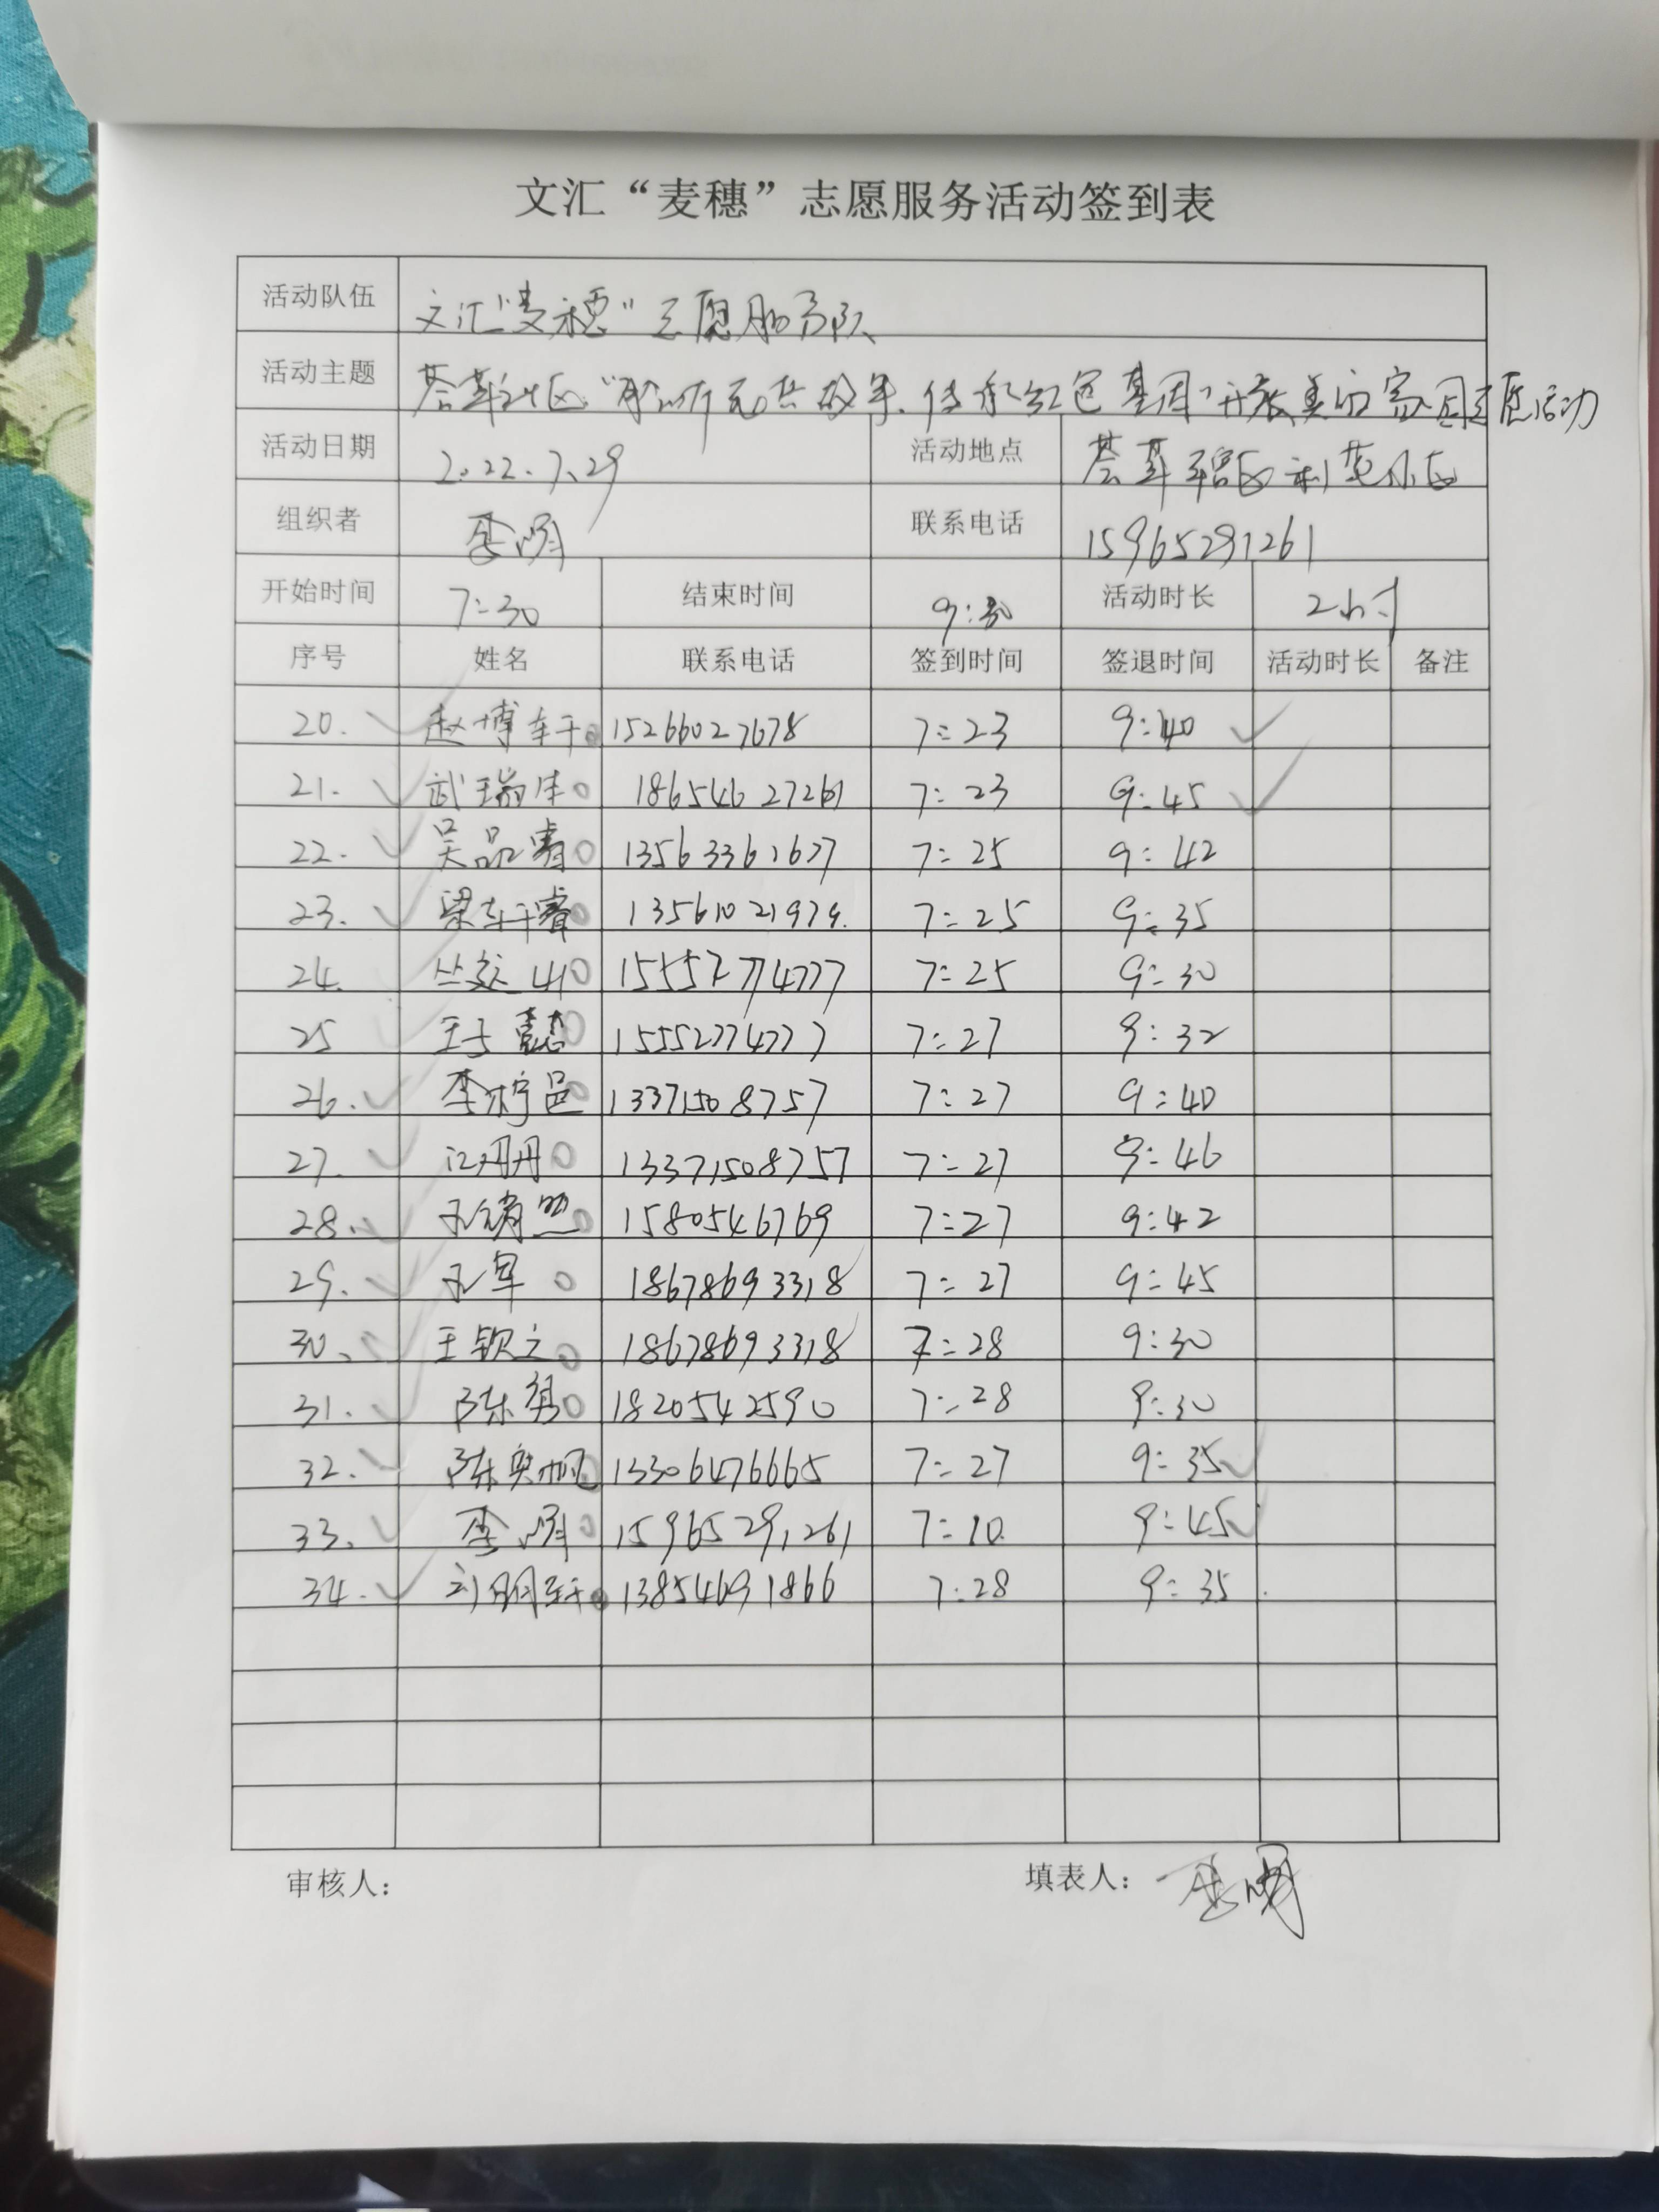 文汇“麦穗”志愿服务活动签到表
活动队伍 文汇“麦穗”志愿服务队
活动主题 荟萃社区“ 传承红色基因”开展美的家园志愿活动
活动日期 2022.7.29 活动地点 荟萃 小区
组织者 李明 联系电话 15965291261
开始时间 7:30 结束时间 9:30 活动时长 2小时
序号 姓名 联系电话 签到时间 签退时间 活动时长 备注
20. 赵博轩 15266027678 7:23 9:40
21. 武瑞 7:23 9:45
22. 吴品 13563361677 7:25 9:42
23. 梁轩睿 13561021979. 7:25 9:35
24. 丛 15552774777 7:25 9:30
25 王子 15552774777 7:27 9:32
26. 李柠邑 13371508757 7:27 9:40
27. 江丹丹 13371508757 7:27 9:46
28. 孔 然 1580546769 7:27 9:42
29. 孔军 18678693318 7:27 9:45
30. 王钦立 18678693318 7:28 9:30
31. 陈 1820542590 7:28 9:30
32. 陈奕帆 13306476665 7:27 9:35
33. 李明 15965291261 7:10. 9:45
34. 轩 13854691866 7:28 9:35
审核人： 填表人：李明